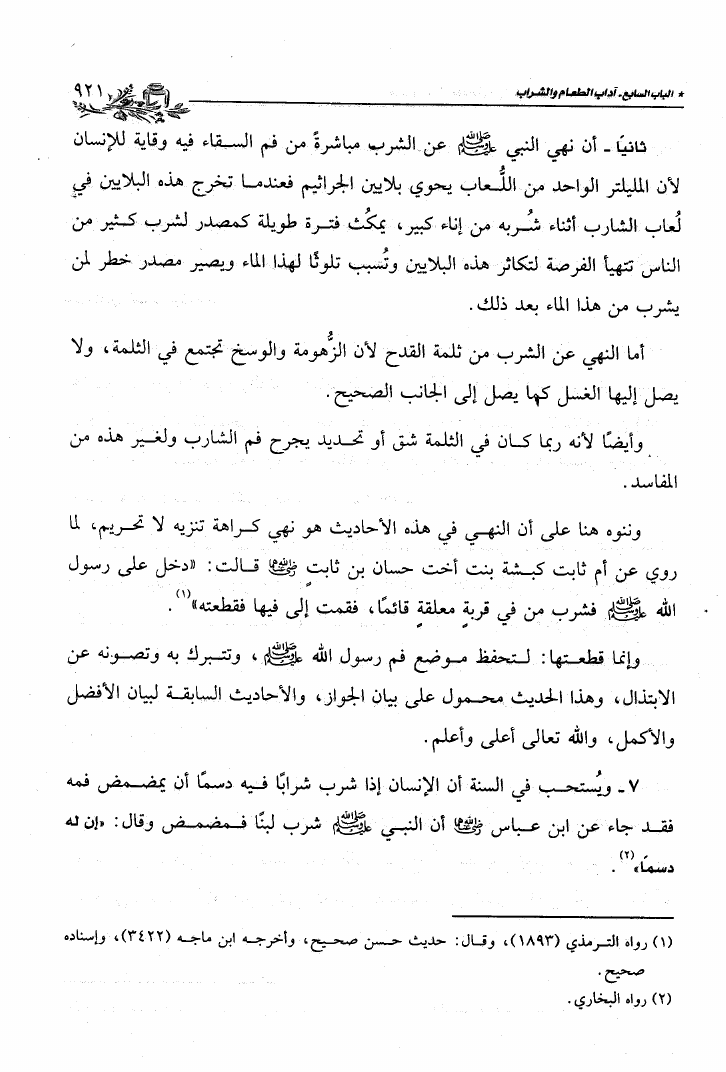 * الباب السابع - آداب الطعام والشراب ٩٢١
ثانيًا - أن نهي النبي ﷺ عن الشرب مباشرةً من فم السقاء فيه وقاية للإنسان
لأن المليلتر الواحد من اللُّعاب يحوي بلايين الجراثيم فعندما تخرج هذه البلايين في
لُعاب الشارب أثناء شُربه من إناء كبير، يمكُث فترة طويلة كمصدر لشرب كثير من
الناس تتهيأ الفرصة لتكاثر هذه البلايين وتُسبب تلوثًا لهذا الماء ويصير مصدر خطر لمن
يشرب من هذا الماء بعد ذلك.
أما النهي عن الشرب من ثلمة القدح لأن الزُّهومة والوسخ تجتمع في الثلمة، ولا
يصل إليها الغسل كما يصل إلى الجانب الصحيح.
وأيضًا لأنه ربما كان في الثلمة شق أو تحديد يجرح فم الشارب ولغير هذه من
المفاسد.
وننوه هنا على أن النهي في هذه الأحاديث هو نهي كراهة تنزيه لا تحريم، لما
روي عن أم ثابت كبشة بنت أخت حسان بن ثابتٍ رضي الله عنهما قالت: «دخل على رسول
الله ﷺ فشرب من في قربةٍ معلقةٍ قائمًا، فقمت إلى فيها فقطعته»(١).
وإنما قطعتها: لتحفظ موضع فم رسول الله ﷺ، وتتبرك به وتصونه عن
الابتذال، وهذا الحديث محمول على بيان الجواز، والأحاديث السابقة لبيان الأفضل
والأكمل، والله تعالى أعلى وأعلم.
٧ - ويُستحب في السنة أن الإنسان إذا شرب شرابًا فيه دسمًا أن يمضمض فمه
فقد جاء عن ابن عباس رضي الله عنهما أن النبي ﷺ شرب لبنًا فمضمض وقال: «إن له
دسمًا»(٢).
(١) رواه الترمذي (١٨٩٣)، وقال: حديث حسن صحيح، وأخرجه ابن ماجه (٣٤٢٢)، وإسناده
صحيح.
(٢) رواه البخاري.